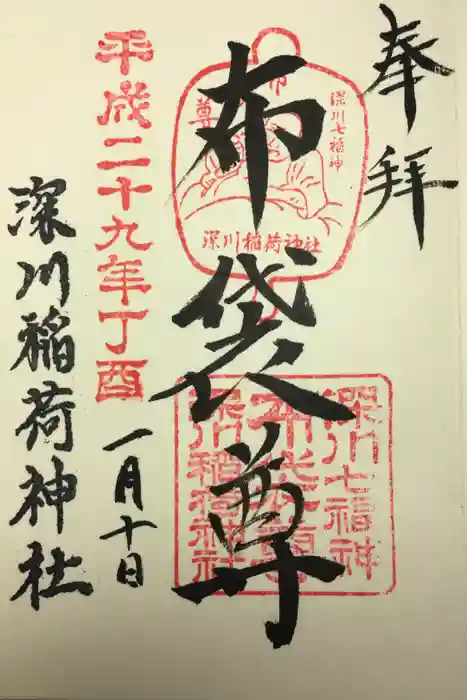 奉拝
布袋尊
布
尊
深川七福神
深川稲荷神社
深川七福神
布袋尊
深川稲荷神社
平成二十九年丁酉
一月十日
深川稲荷神社